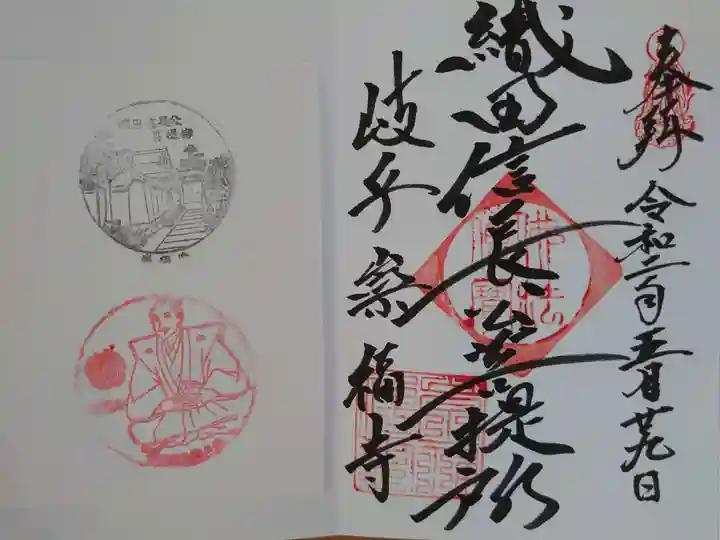 奉拝
令和二年五月廿九日
織田信長公菩提所
岐阜崇福寺